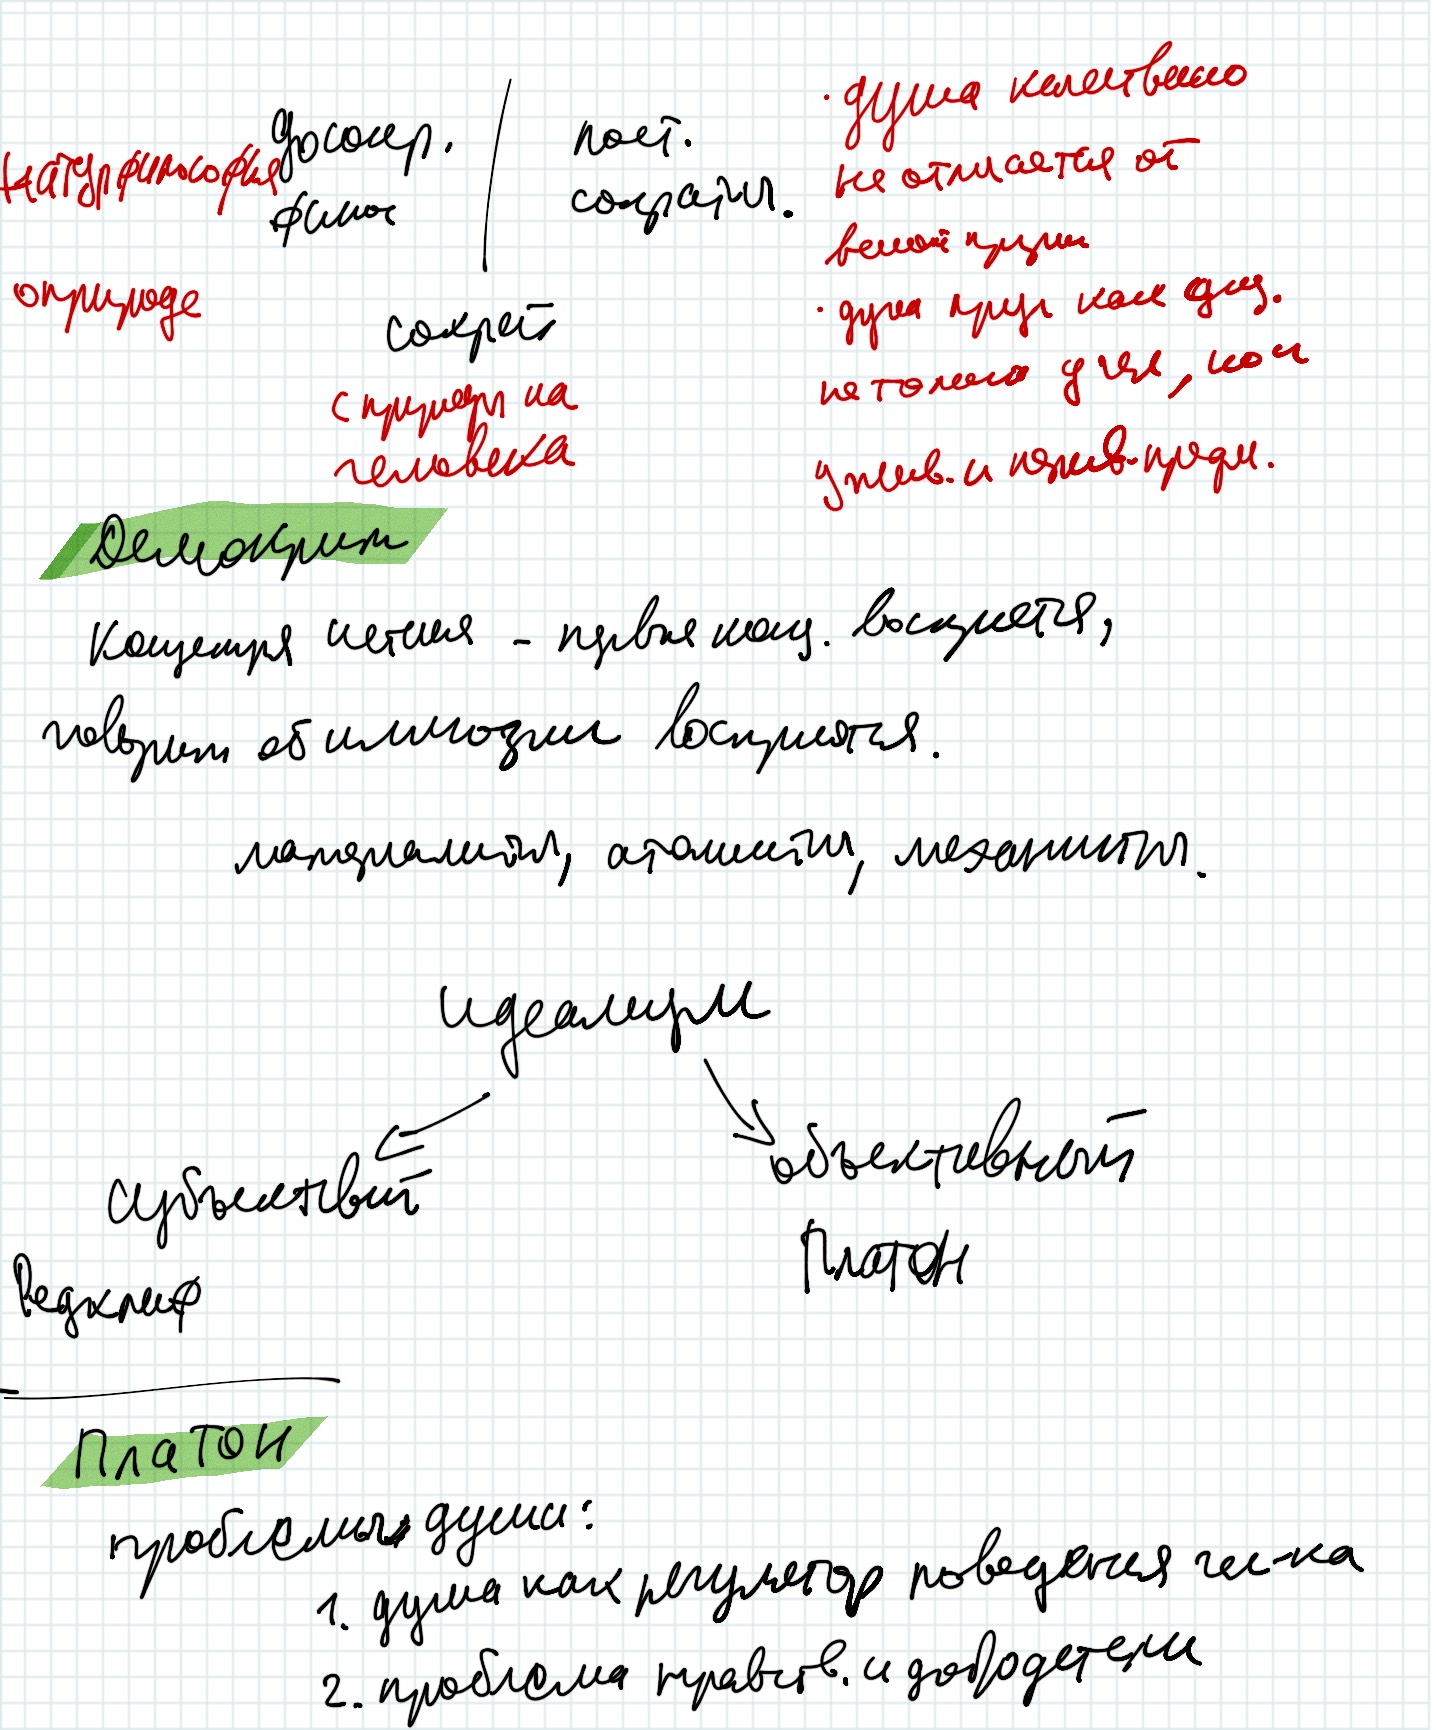 натурфилософия
о природе
досокр.
филос
пост.
сократы.
сократ
с природы на
человека
· душа качествено
не отличается от
· душа как
не только у чел, но и
у жив. и нежив. предм.
Демокрит
Концепция - первая конц. восприятия,
говорит об иллюзии восприятия.
материалисты, атомисты, механисты.
идеализм
субъективный
объективный
Платон
Платон
проблемы души:
1. душа как регулятор поведения чел-ка
2. проблема нравств. и добродетели